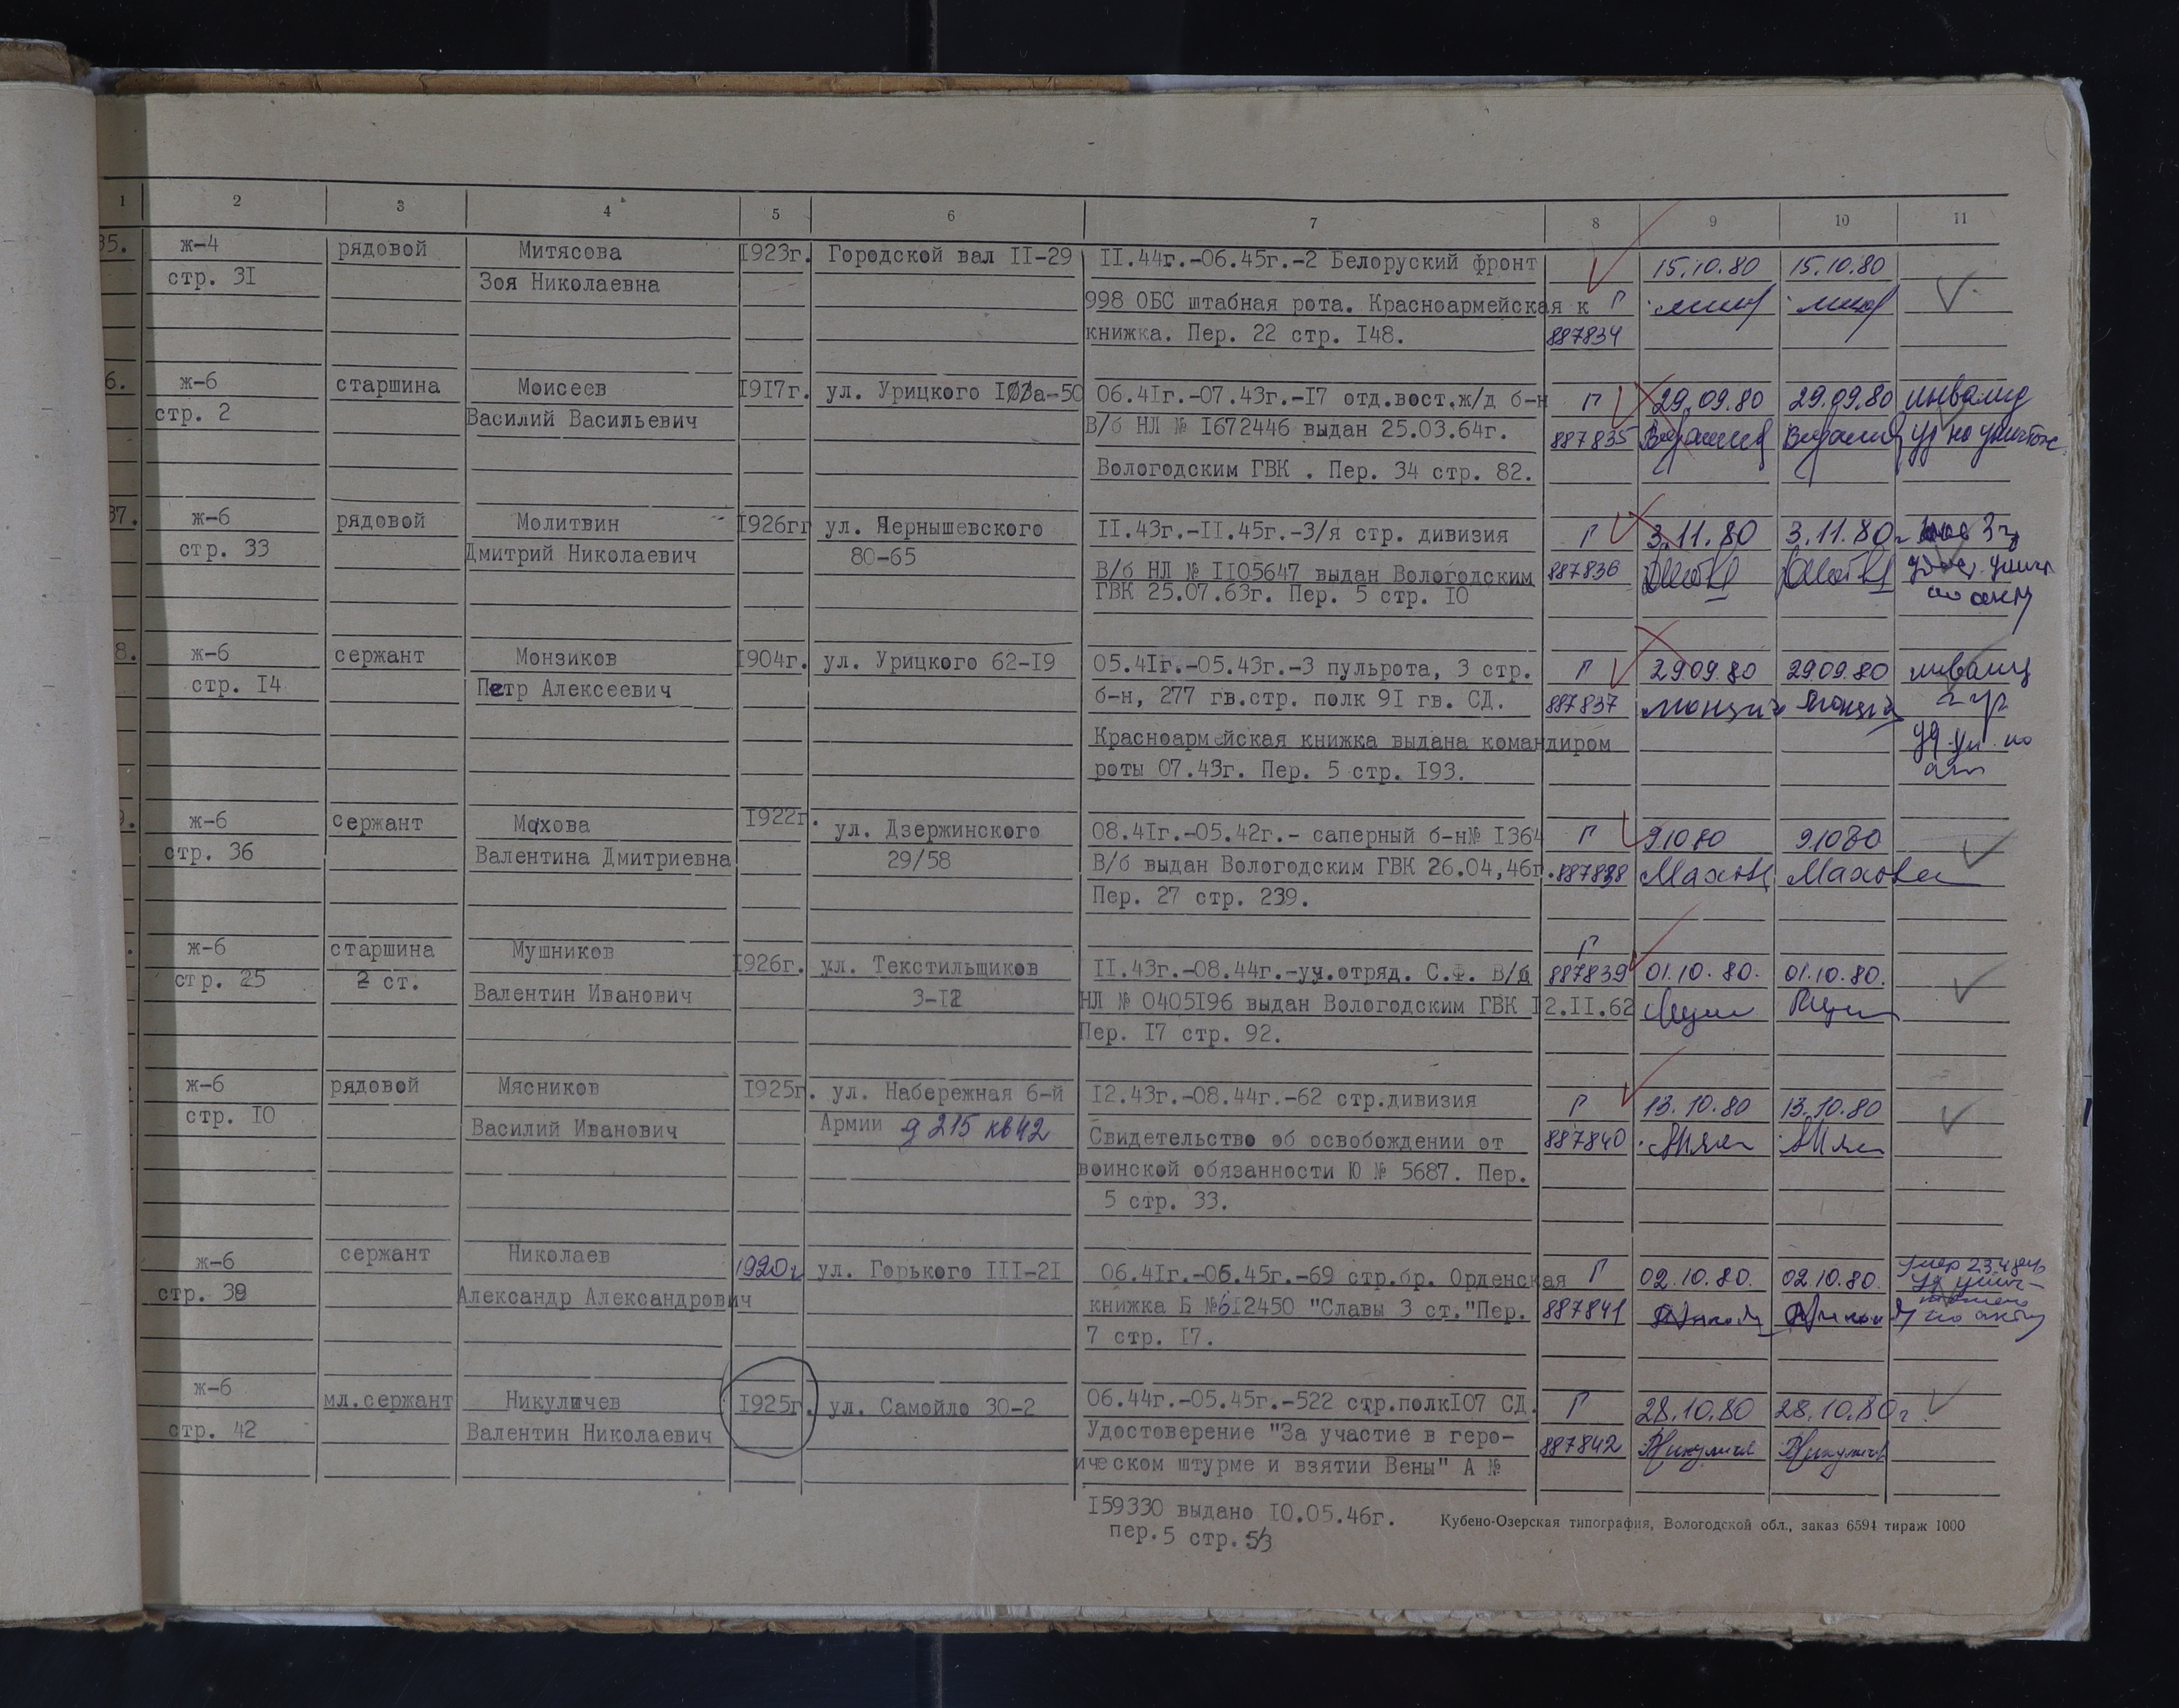 1 2 3 4 5 6 7 8 9 10 11
35. ж-4 рядовой Митясова 1923г. Городской вал II-29 II.44г.-06.45г.-2 Белоруский фронт 15.10.80 15.10.80
стр. 3I Зоя Николаевна 998 ОБС штабная рота. Красноармейская к Г
книжка. Пер. 22 стр. I48. 887834
6. ж-6 старшина Моисеев 1917г. ул. Урицкого а-50 06.4Iг.-07.43г.-I7 отд.вост.ж/д б-н Г 29.09.80 29.09.80 инвалид
стр. 2 Василий Васильевич В/б НЛ № I672446 выдан 25.03.64г. 887835
Вологодским ГВК . Пер. 34 стр. 82.
37. ж-6 рядовой Молитвин 1926гг ул. Чернышевского II.43г.-II.45г.-3/я стр. дивизия Г 3.11.80 3.11.80г
стр. 33 Дмитрий Николаевич 80-65 В/б НЛ № II05647 выдан Вологодским 887836
ГВК 25.07.63г. Пер. 5 стр. I0 по акту
8. ж-6 сержант Монзиков 1904г. ул. Урицкого 62-I9 05.4Iг.-05.43г.-3 пульрота, 3 стр. Г 29.09.80 29.09.80 инвалид
стр. I4 Петр Алексеевич б-н, 277 гв.стр. полк 9I гв. СД. 887837 2 гр
Красноармейская книжка выдана командиром
роты 07.43г. Пер. 5 стр. I93.
9. ж-6 сержант Махова 1922г. ул. Дзержинского 08.4Iг.-05.42г.- саперный б-н№ I364 Г 91080 91080
стр. 36 Валентина Дмитриевна 29/58 В/б выдан Вологодским ГВК 26.04,46г. 887838 Махова Махова
Пер. 27 стр. 239.
ж-6 старшина Мушников 1926г. ул. Текстильщиков II.43г.-08.44г.-уч.отряд. С.Ф. В/б Г 887839 01.10.80. 01.10.80.
стр. 25 2 ст. Валентин Иванович 3-I2 НЛ № 0405I96 выдан Вологодским ГВК I2.II.62
Пер. I7 стр. 92.
ж-6 рядовой Мясников 1925г. ул. Набережная 6-й I2.43г.-08.44г.-62 стр.дивизия Г 13.10.80 13.10.80
стр. I0 Василий Иванович Армии д 215 кв42 Свидетельство об освобождении от 887840
воинской обязанности Ю № 5687. Пер.
5 стр. 33.
ж-6 сержант Николаев 1920г ул. Горького III-2I 06.4Iг.-06.45г.-69 стр.бр. Орденская Г 02.10.80. 02.10.80.
стр. 39 Александр Александрович книжка Б №6I2450 "Славы 3 ст."Пер. 887841 по акту
7 стр. I7.
ж-6 мл.сержант Никуличев 1925г. ул. Самойло 30-2 06.44г.-05.45г.-522 стр.полкI07 СД. Г 28.10.80 28.10.80г.
стр. 42 Валентин Николаевич Удостоверение "За участие в геро- 887842
ическом штурме и взятии Вены" А №
I59330 выдано I0.05.46г.
пер.5 стр.53
Кубено-Озерская типография, Вологодской обл., заказ 6594 тираж 1000